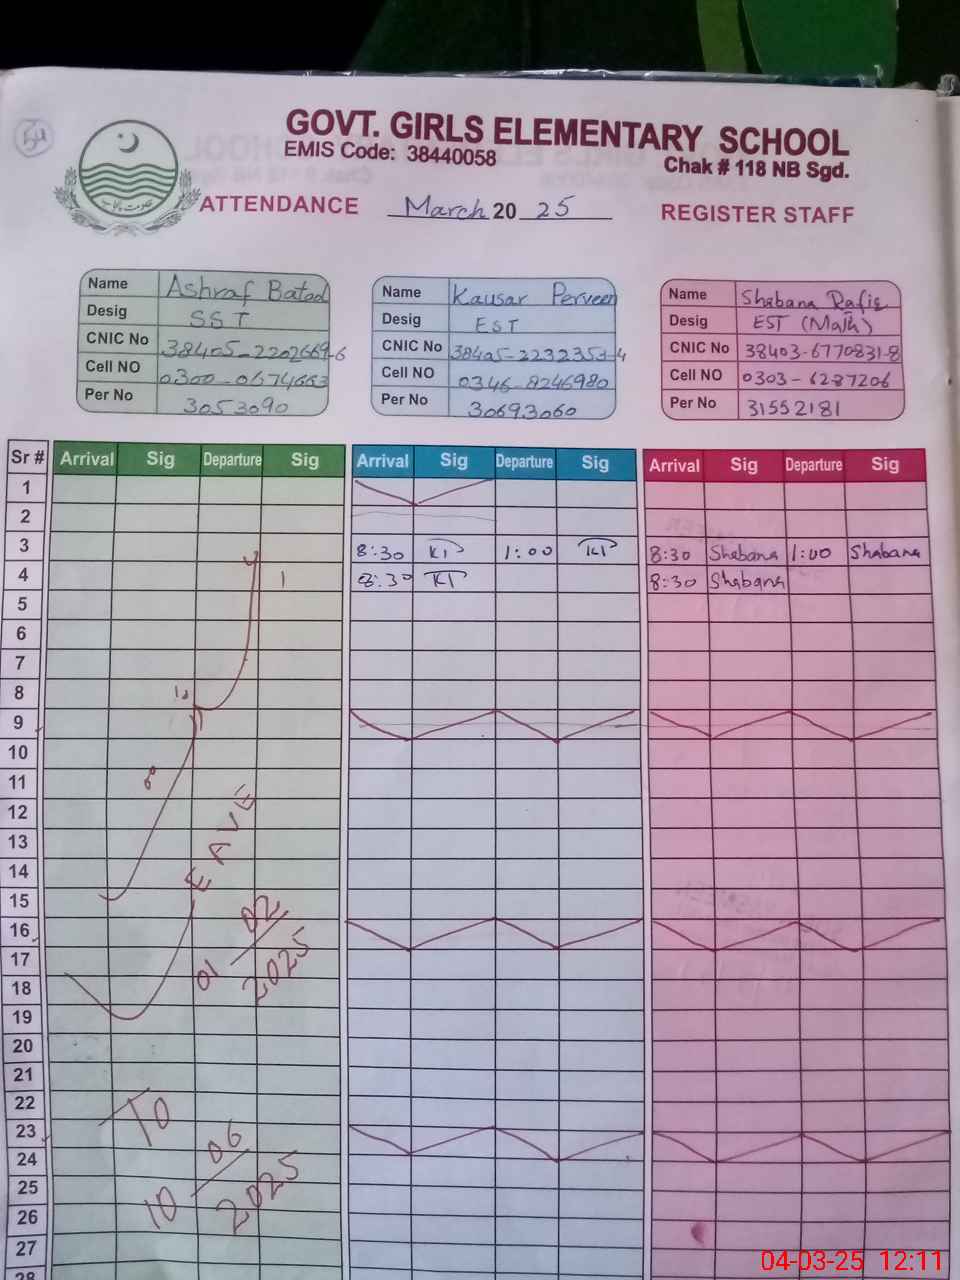 GOVT. GIRLS ELEMENTARY SCHOOL
EMIS Code: 38440058
Chak # 118 NB Sgd.
ATTENDANCE March 20 25 REGISTER STAFF
Name Ashraf Batool
Desig SST
CNIC No 38405-2202669-6
Cell NO 0300-0674663
Per No 3053090
Name Kausar Perveen
Desig EST
CNIC No
Cell NO 0346-8246980
Per No 30693060
Name Shabana Rafiq
Desig EST (Math)
CNIC No 38403-6770831-8
Cell NO 0303-6287206
Per No 31552181
Sr # Arrival Sig Departure Sig Arrival Sig Departure Sig Arrival Sig Departure Sig
1
2
3 8:30 KP 1:00 KP 8:30 Shabana 1:00 Shabana
4 8:30 KP 8:30 Shabana
5
6
7
8
9
10
11
12
13
14
15
16
17
18
19
20
21
22
23
24
25
26
27
28
LEAVE
01/02/2025
TO
10/06/2025
04-03-25 12:11